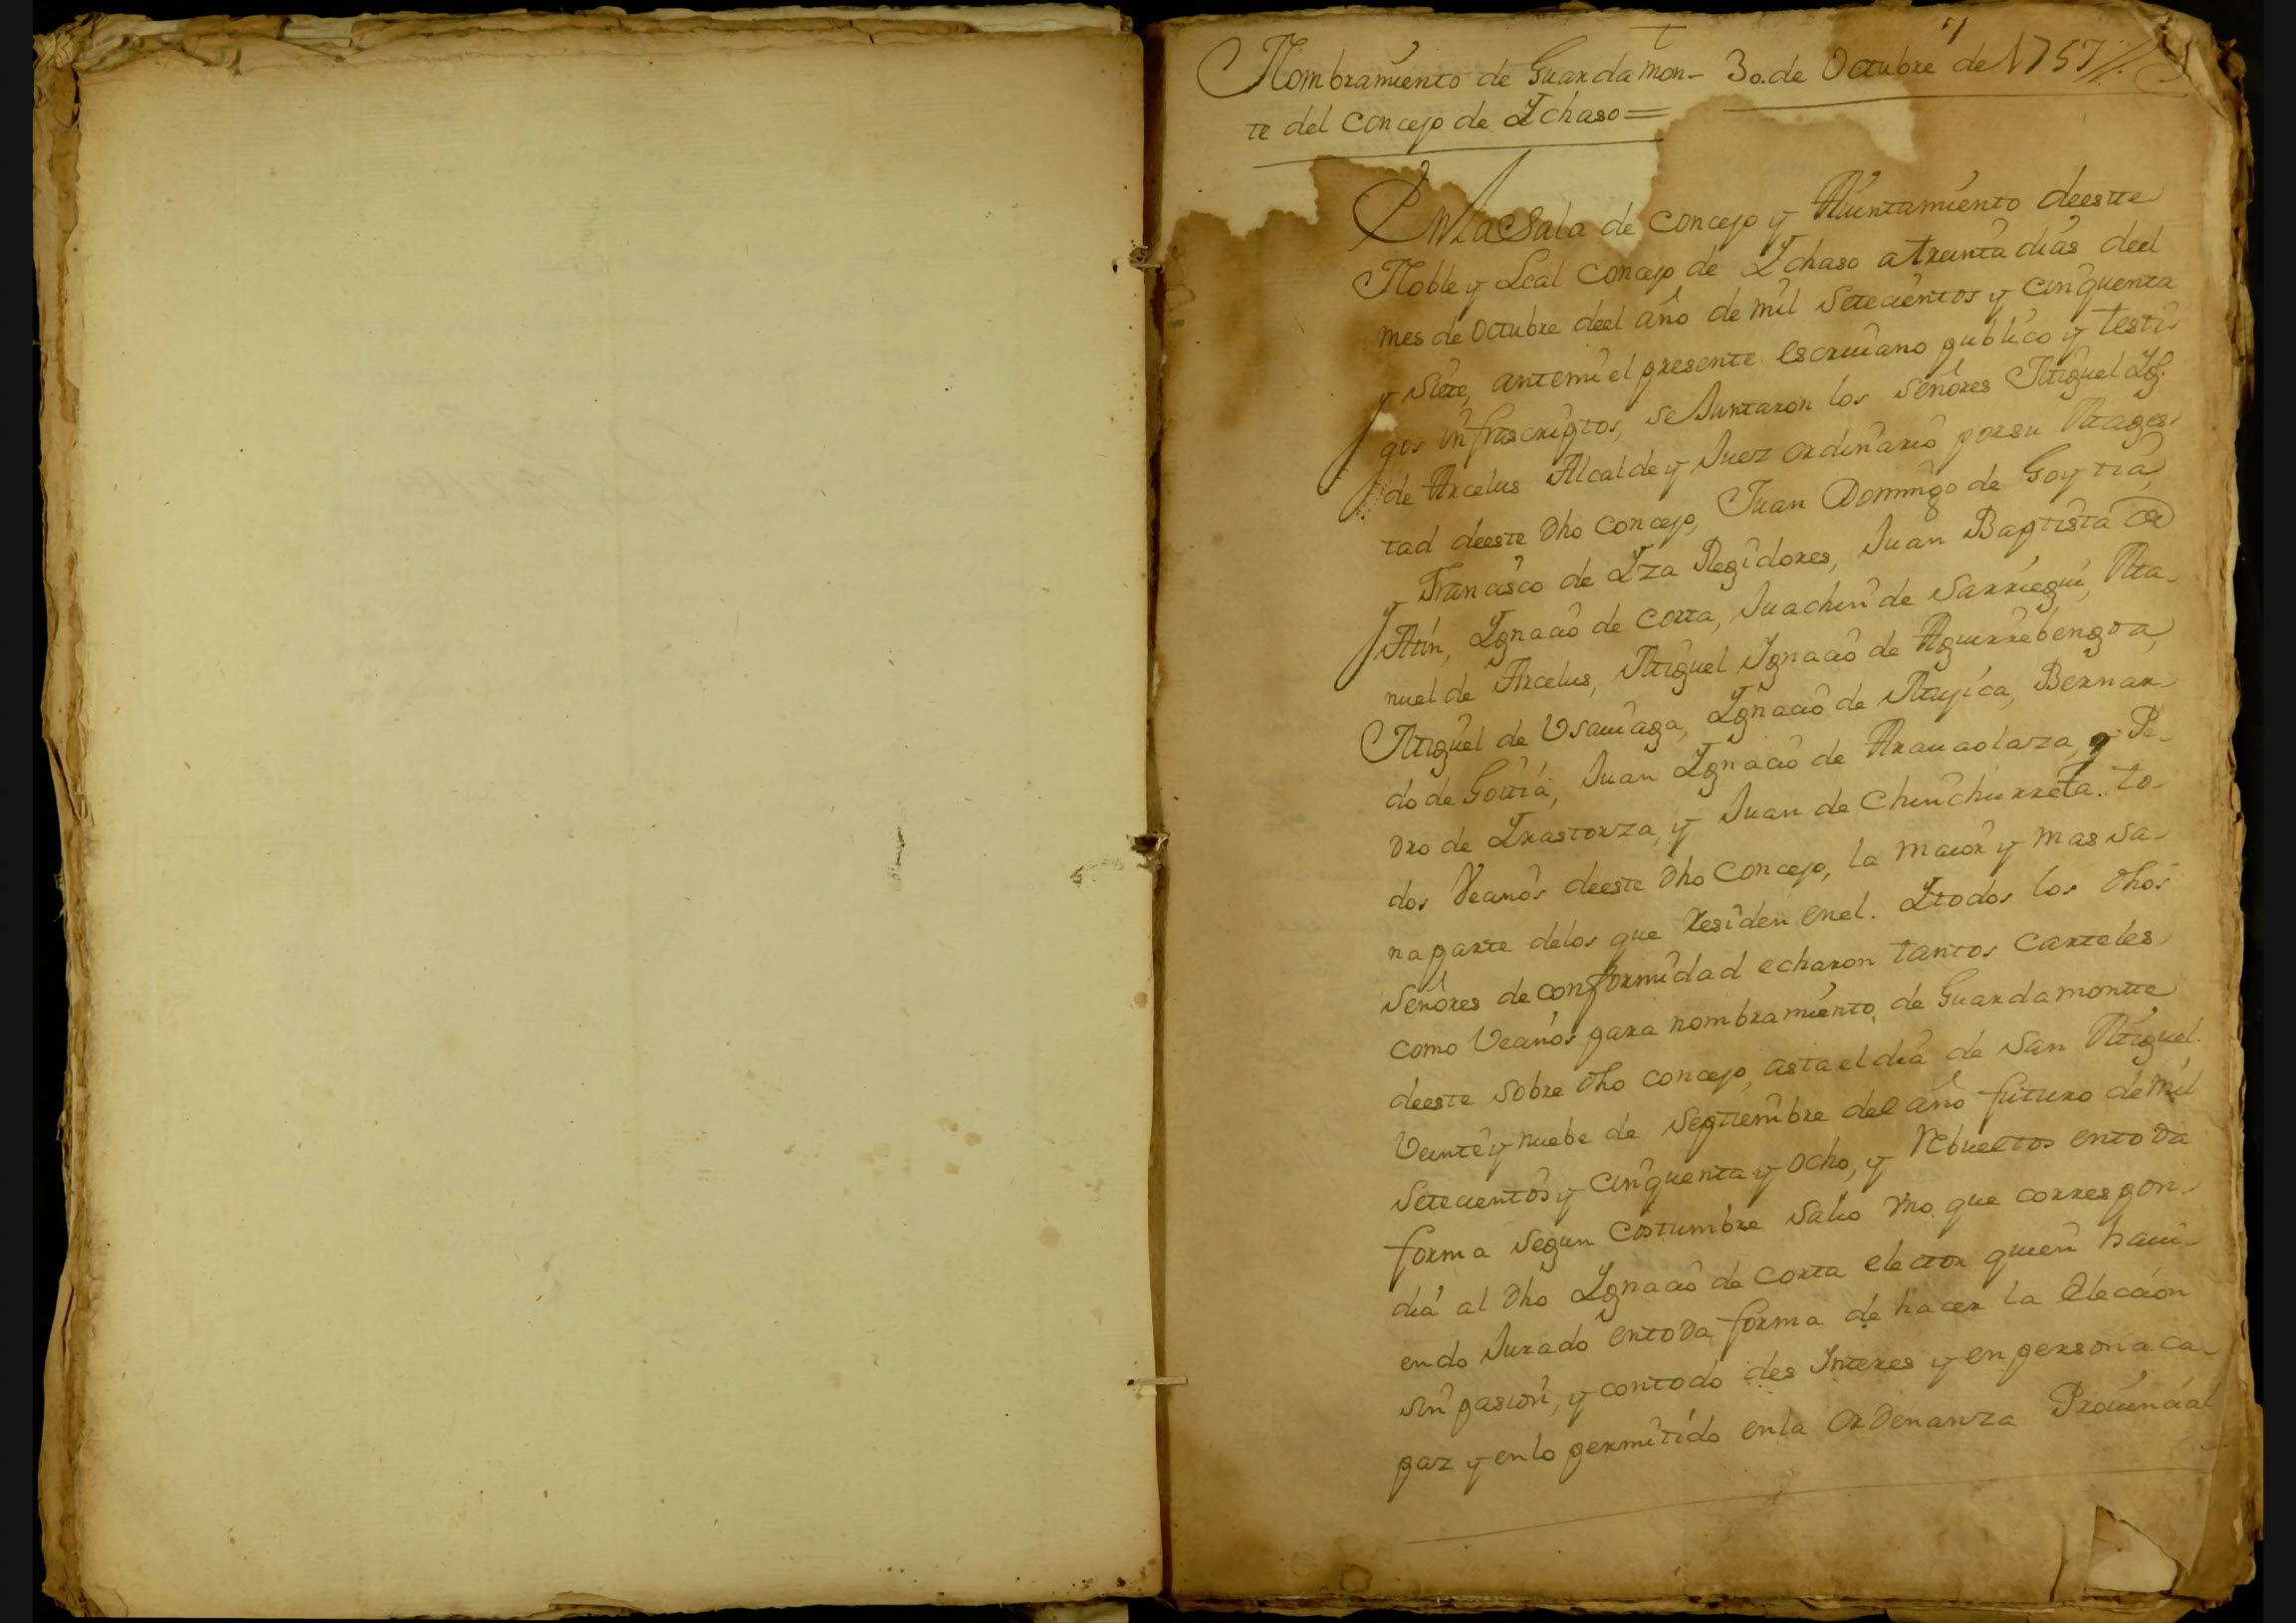 Nombramiento de Guardamon- 30. de Octubre de 1757//.
te del Concejo de Ychaso=
En la Sala de Concejo y Aiuntamiento deestte
Noble y Leal Concejo de Ychaso a treinta dias deel
mes de Octubre deel año de mil Setecientos y cinquenta
y Siete, antemi el presente escriuano publico y testi-
gos infrascriptos, se Juntaron los señores Miguel Yg.º
de Arcelus Alcalde y Juez ordinario porsu Mages-
tad deeste dho Concejo, Juan Domingo de Goytia,
y Francisco de Yza Regidores, Juan Baptista de
Atin, Ygnacio de Corta, Juachin de Sarriegui, Ma-
nuel de Arcelus, Miguel Ignacio de Aguirrebengoa,
Miguel de Vsauiaga, Ygnacio de Mayica, Bernar-
do de Goitia, Juan Ygnacio de Aranaolaza, y Pe-
dro de Yrastorza, y Juan de Chinchurreta. to-
dos Vecinos deeste dho Concejo, la maior y mas sa-
na parte delos que residen enel. Ytodos los dhos
Señores de conformidad echaron tantos carteles
como Vecinos para nombramiento de Guardamontte
deeste sobre dho concejo, asta el dia de San Miguel
Veinte y nuebe de Septiembre del año futuro de mil
Setecientos y cinquenta y ocho, y rebueltos entoda
forma Segun costumbre Salio vno que correspon-
dia al dho Ygnacio de Corta elector quien haui-
endo Jurado entoda forma de hacer la eleccion
sin pasion, y contodo des Interes y en persona ca-
paz y en lo permitido enla ordenanza Prouincial